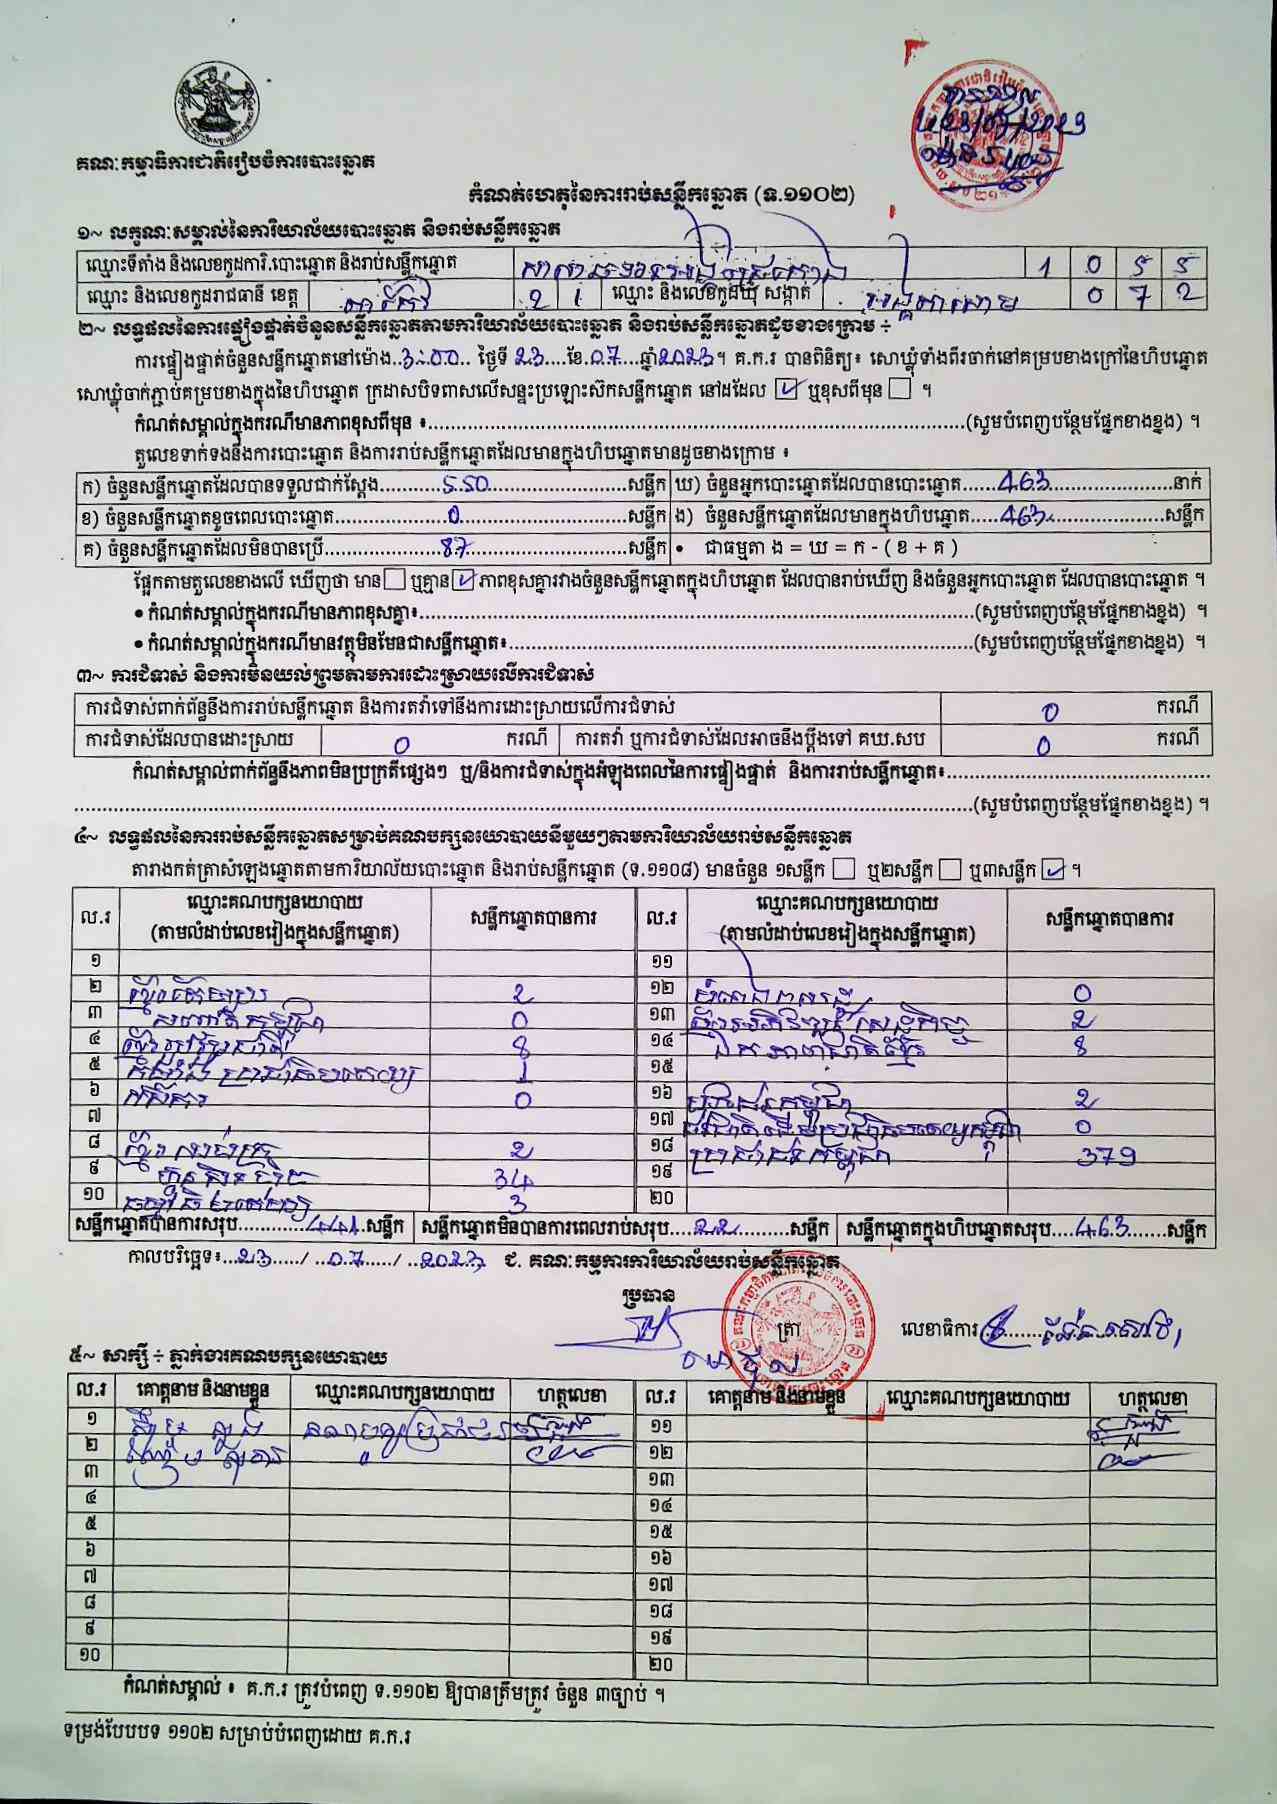 គណៈកម្មាធិការជាតិរៀបចំការបោះឆ្នោត
កំណត់ហេតុនៃការរាប់សន្លឹកឆ្នោត (ទ.១១០២)
១~ លក្ខណៈសម្គាល់នៃការិយាល័យបោះឆ្នោត និងរាប់សន្លឹកឆ្នោត
ឈ្មោះទីតាំង និងលេខកូដការិ.បោះឆ្នោត និងរាប់សន្លឹកឆ្នោត 1 0 5 5
ឈ្មោះ និងលេខកូដរាជធានី ខេត្ត តាកែវ 2 1 ឈ្មោះ និងលេខកូដឃុំ សង្កាត់ 0 7 2
២~ លទ្ធផលនៃការផ្ទៀងផ្ទាត់ចំនួនសន្លឹកឆ្នោតតាមការិយាល័យបោះឆ្នោត និងរាប់សន្លឹកឆ្នោតដូចខាងក្រោម ÷
ការផ្ទៀងផ្ទាត់ចំនួនសន្លឹកឆ្នោតនៅម៉ោង..3:00.. ថ្ងៃទី 23....ខែ.07...ឆ្នាំ2023។ គ.ក.រ បានពិនិត្យ៖ សោឃ្លុំទាំងពីរចាក់នៅគម្របខាងក្រៅនៃហិបឆ្នោត
សោឃ្លុំចាក់ភ្ជាប់គម្របខាងក្នុងនៃហិបឆ្នោត ក្រដាសបិទពាសលើសន្ទះប្រឡោះស៊កសន្លឹកឆ្នោត នៅដដែល ☑ ឬខុសពីមុន ☐ ។
កំណត់សម្គាល់ក្នុងករណីមានភាពខុសពីមុន ៖.....(សូមបំពេញបន្ថែមផ្នែកខាងខ្នង) ។
តួលេខទាក់ទងនឹងការបោះឆ្នោត និងការរាប់សន្លឹកឆ្នោតដែលមានក្នុងហិបឆ្នោតមានដូចខាងក្រោម ៖
ក) ចំនួនសន្លឹកឆ្នោតដែលបានទទួលជាក់ស្តែង.....550.....សន្លឹក ឃ) ចំនួនអ្នកបោះឆ្នោតដែលបានបោះឆ្នោត.....463.....នាក់
ខ) ចំនួនសន្លឹកឆ្នោតខូចពេលបោះឆ្នោត.....0.....សន្លឹក ង) ចំនួនសន្លឹកឆ្នោតដែលមានក្នុងហិបឆ្នោត.....463.....សន្លឹក
គ) ចំនួនសន្លឹកឆ្នោតដែលមិនបានប្រើ.....87.....សន្លឹក • ជាធម្មតា ង = ឃ = ក - ( ខ + គ )
ផ្អែកតាមតួលេខខាងលើ ឃើញថា មាន ☐ ឬគ្មាន ☑ ភាពខុសគ្នារវាងចំនួនសន្លឹកឆ្នោតក្នុងហិបឆ្នោត ដែលបានរាប់ឃើញ និងចំនួនអ្នកបោះឆ្នោត ដែលបានបោះឆ្នោត ។
• កំណត់សម្គាល់ក្នុងករណីមានភាពខុសគ្នា៖.....(សូមបំពេញបន្ថែមផ្នែកខាងខ្នង) ។
• កំណត់សម្គាល់ក្នុងករណីមានវត្ថុមិនមែនជាសន្លឹកឆ្នោត៖.....(សូមបំពេញបន្ថែមផ្នែកខាងខ្នង) ។
៣~ ការជំទាស់ និងការមិនយល់ព្រមតាមការដោះស្រាយលើការជំទាស់
ការជំទាស់ពាក់ព័ន្ធនឹងការរាប់សន្លឹកឆ្នោត និងការតវ៉ាទៅនឹងការដោះស្រាយលើការជំទាស់ 0 ករណី
ការជំទាស់ដែលបានដោះស្រាយ 0 ករណី ការតវ៉ា ឬការជំទាស់ដែលអាចនឹងប្តឹងទៅ គឃ.សប 0 ករណី
កំណត់សម្គាល់ពាក់ព័ន្ធនឹងភាពមិនប្រក្រតីផ្សេងៗ ឬ/និងការជំទាស់ក្នុងអំឡុងពេលនៃការផ្ទៀងផ្ទាត់ និងការរាប់សន្លឹកឆ្នោត៖.....
.....(សូមបំពេញបន្ថែមផ្នែកខាងខ្នង) ។
៤~ លទ្ធផលនៃការរាប់សន្លឹកឆ្នោតសម្រាប់គណបក្សនយោបាយនីមួយៗតាមការិយាល័យរាប់សន្លឹកឆ្នោត
តារាងកត់ត្រាសំឡេងឆ្នោតតាមការិយាល័យបោះឆ្នោត និងរាប់សន្លឹកឆ្នោត (ទ.១១០៨) មានចំនួន ១សន្លឹក ☐ ឬ២សន្លឹក ☐ ឬ៣សន្លឹក ☑ ។
ល.រ ឈ្មោះគណបក្សនយោបាយ (តាមលំដាប់លេខរៀងក្នុងសន្លឹកឆ្នោត) សន្លឹកឆ្នោតបានការ ល.រ ឈ្មោះគណបក្សនយោបាយ (តាមលំដាប់លេខរៀងក្នុងសន្លឹកឆ្នោត) សន្លឹកឆ្នោតបានការ
១ ១១
២ 2 ១២ 0
៣ 0 ១៣ 2
៤ 8 ១៤ ឯកភាពជាតិខ្មែរ 8
៥ កំលាំងប្រជាធិបតេយ្យ 1 ១៥
៦ កសិករ 0 ១៦ 2
៧ ១៧ 0
៨ 2 ១៨ ប្រជាជនកម្ពុជា 379
៩ ហ៊្វុនស៊ិនប៉ិច 34 ១៩
១០ 3 ២០
សន្លឹកឆ្នោតបានការសរុប.....441.សន្លឹក សន្លឹកឆ្នោតមិនបានការពេលរាប់សរុប....22.....សន្លឹក សន្លឹកឆ្នោតក្នុងហិបឆ្នោតសរុប....463.....សន្លឹក
កាលបរិច្ឆេទ៖...23...../...07...../...2023 ជ. គណៈកម្មការការិយាល័យរាប់សន្លឹកឆ្នោត
ប្រធាន
ត្រា
លេខាធិការ
៥~ សាក្សី ÷ ភ្នាក់ងារគណបក្សនយោបាយ
ល.រ គោត្តនាម និងនាមខ្លួន ឈ្មោះគណបក្សនយោបាយ ហត្ថលេខា ល.រ គោត្តនាម និងនាមខ្លួន ឈ្មោះគណបក្សនយោបាយ ហត្ថលេខា
១ ១១
២ ១២
៣ ១៣
៤ ១៤
៥ ១៥
៦ ១៦
៧ ១៧
៨ ១៨
៩ ១៩
១០ ២០
កំណត់សម្គាល់ ៖ គ.ក.រ ត្រូវបំពេញ ទ.១១០២ ឱ្យបានត្រឹមត្រូវ ចំនួន ៣ច្បាប់ ។
ទម្រង់បែបបទ ១១០២ សម្រាប់បំពេញដោយ គ.ក.រ